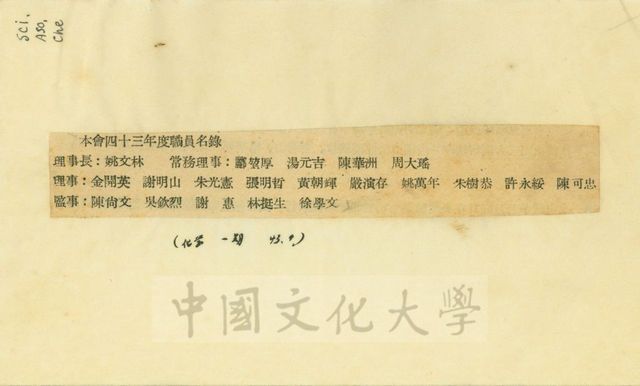 Sci,
Aso,
Che
本會四十三年度職員名錄
理事長：姚文林　常務理事：酈堃厚　湯元吉　陳華洲　周大瑤
理事：金開英　謝明山　朱光憲　張明哲　黃朝輝　嚴演存　姚萬年　朱樹恭　許永綏　陳可忠
監事：陳尙文　吳欽烈　謝　惠　林挺生　徐學文
（化學　一期　43.9.）
中國文化大學